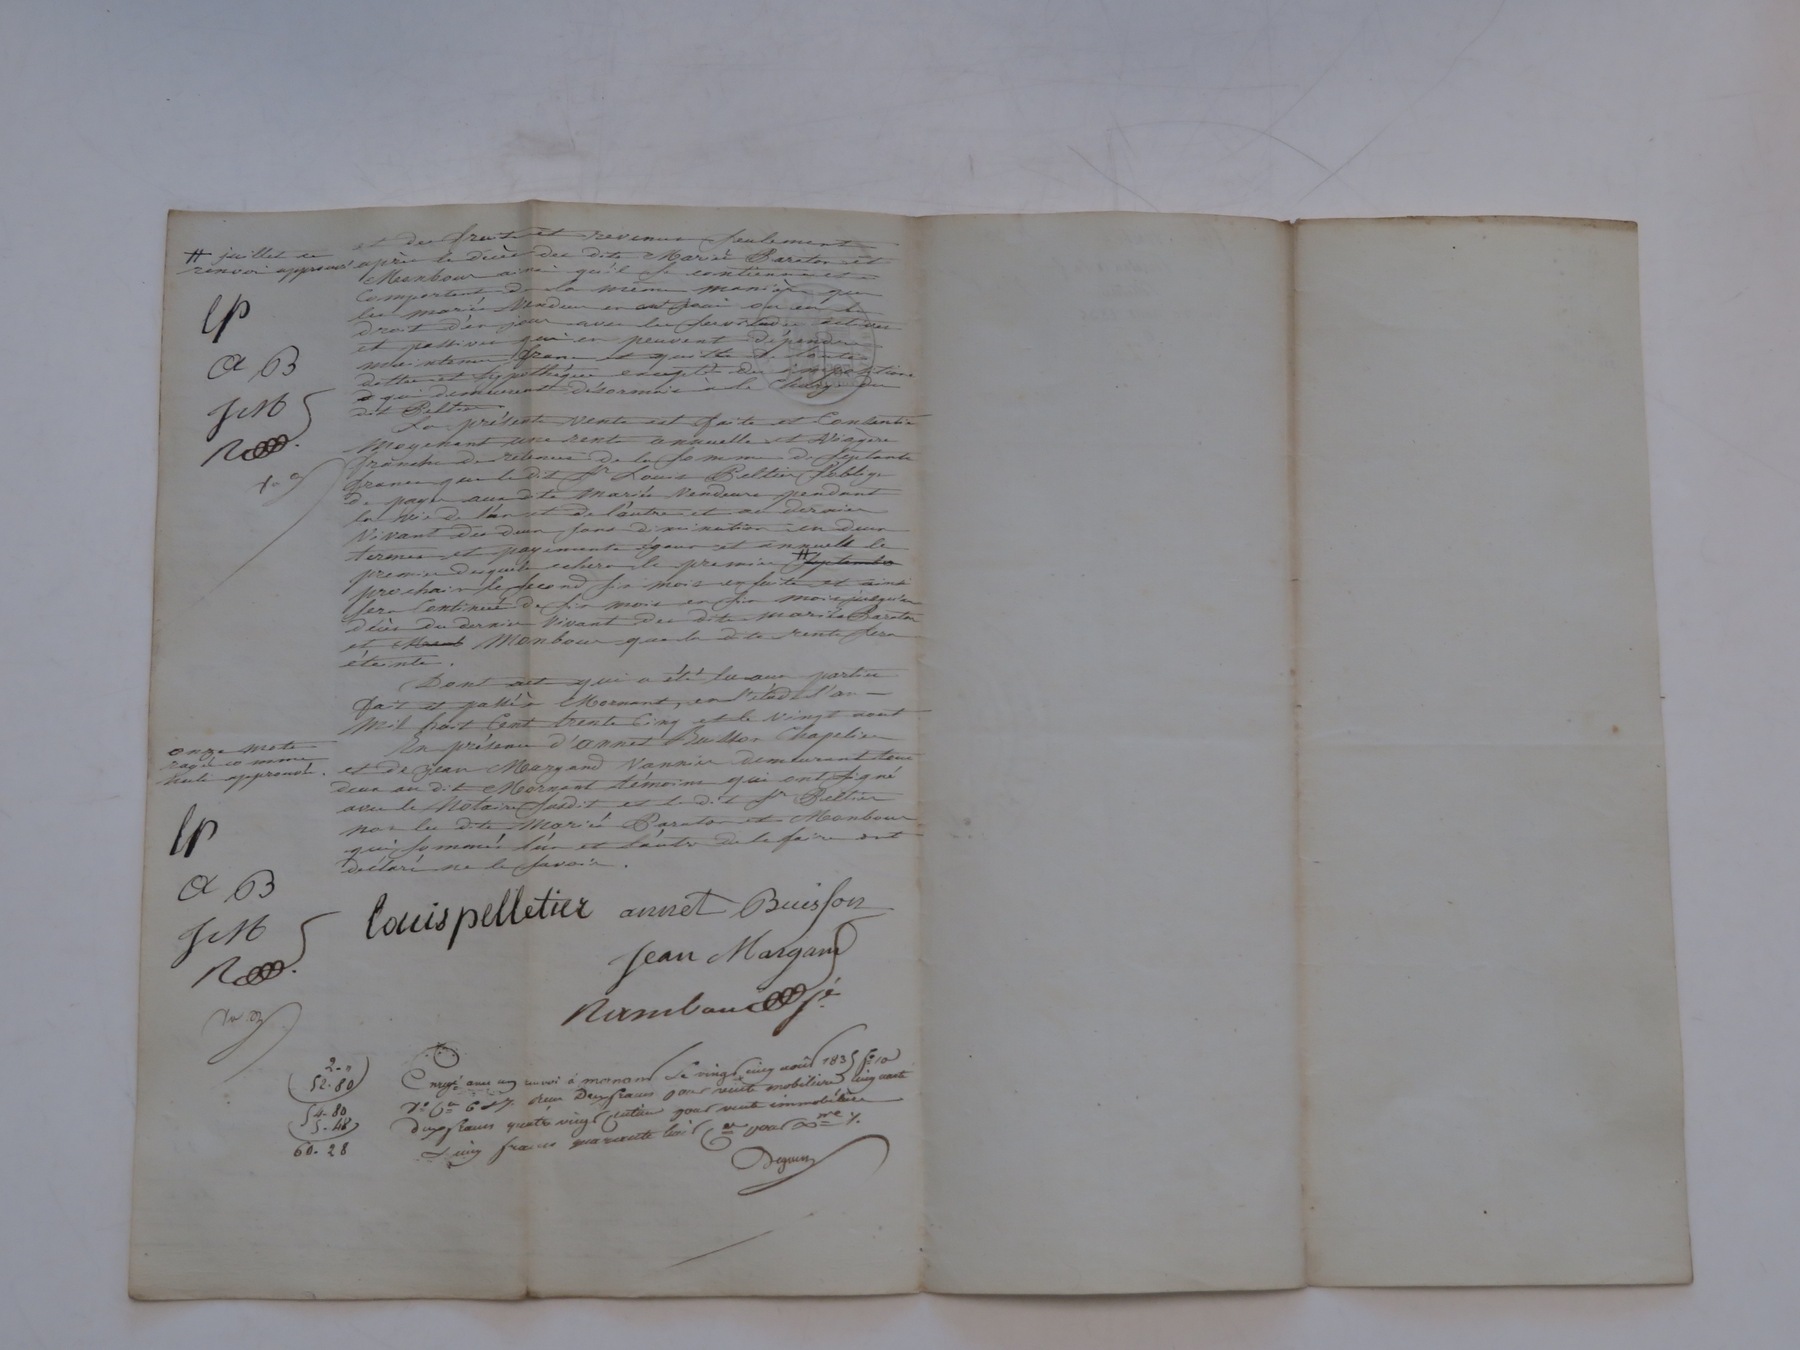 et des fruits et revenus seulement
après le décès des dits Mariés Paraton et
Monbour ainsi qu'il se contienne et se
Comportent de la même manière que
les mariés Vendeur en ont joui ou eu le
droit d'en jouir avec les servitudes actives
et passives qui en peuvent dépendre
maintenu franc et quitte de toute
dette et hypothèque excepté des impositions
qui demeurent désormais à la Charge du
dit Peltier.
La présente Vente est faite et Consentie
Moyennant une rente annuelle et Viagère
franche de retenue de la somme de Septante
francs que le dit Sr Louis Peltier s'oblige
de payer aux dits Mariés Vendeurs pendant
la Vie de l'un et de l'autre et au dernier
Vivant des deux sans diminution en deux
termes et payements égaux et annuels le
premier desquels echera le premier # septembre
prochain le second six mois ensuite et ainsi
sera Continué de six mois en six mois jusqu'au
décès du dernier Vivant des dits mariés Paraton
et Monbour que la dite rente sera
éteinte.
Dont acte qui a été lu aux parties
fait et passé à Mornant, en l'étude l'an
Mil huit Cent trente Cinq et le vingt aout
En présence d'annet Buisson Chapelier
et de Jean Margand Vannier demeurant tous
deux au dit Mornant témoins qui ont signé
avec le Notaire susdit et le dit Sr Peltier
non les dits Mariés Paraton et Monbour
qui sommés l'un et l'autre de le faire ont
déclaré ne le savoir.
# juillet
renvoi approuvé
lP
a B
J M
R
onze mots
rayés comme
nuls approuvés.
lP
a B
J M
R
louis pelletier annet Buisson
Jean Margand
2-"
52-80
54-80
5-48
60-28
Enregé avec un renvoi à mornant le vingt cinq août 1835 fo 10
Vo Ces 6 et 7 reçu Deux francs pour vente mobilière cinquante
deux francs quatre vingt centimes pour vente immobilière
Cinq francs quarante huit Ces pour Xme %.